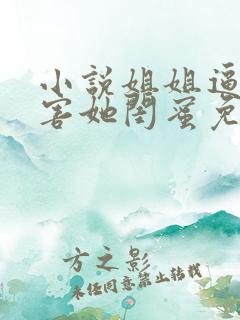 小説姐姐逼
害她閨蜜免
方之影
未经同意禁止转载